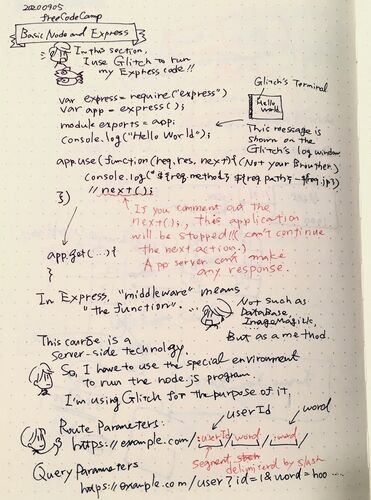 20200905
freeCodeCamp
Basic Node and Express
In this section,
I use Glitch to run
my Express code!!
var express = require("express")
var app = express();
module.exports = app;
console.log("Hello World");
Glitch's Terminal
Hello
World
This message is
shown on the
Glitch's log window.
(Not your Browther.)
app.use(function(req, res, next){
console.log("${req.method} ${req.path} - ${req.ip}")
// next();
})
If you comment out the
next();, this application
will be stopped!! (can't continue
the next action.)
App server can't make
any response.
app.get(...){
}
In Express, "middleware" means
"the function".
Not such as
DataBase,
ImageMagick,
But as a method.
This course is a
server-side technology.
So, I have to use the special environment
to run the node.js program.
I'm using Glitch for the purpose of it.
Route Parameters:
userId word
https://example.com/:userId/word/:word/
segment delimitered by slash
Query Parameters
https://example.com/user?id=1&word=hoo...